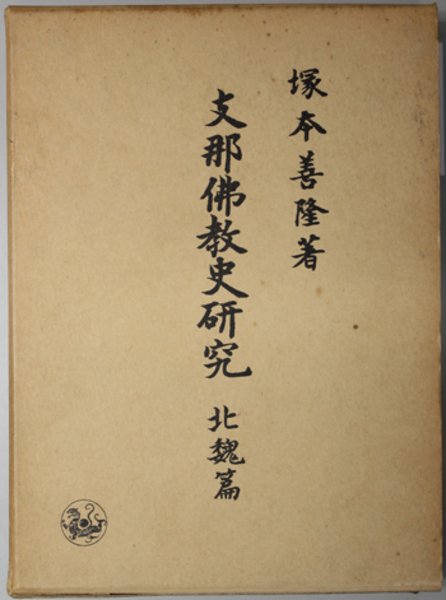 塚本善隆著
支那佛教史研究 北魏篇